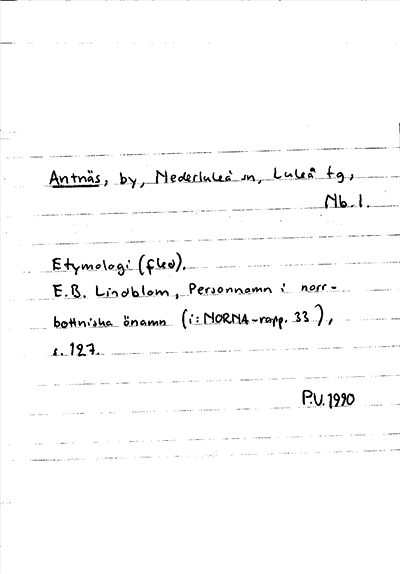 Antnäs, by, Nederluleå sn, Luleå tg,
Nb. l.
Etymologi (fled).
E.B. Lindblom, Personnamn i norr-
bottniska önamn (i: NORNA-rapp. 33),
s. 127.
P.V. 1990